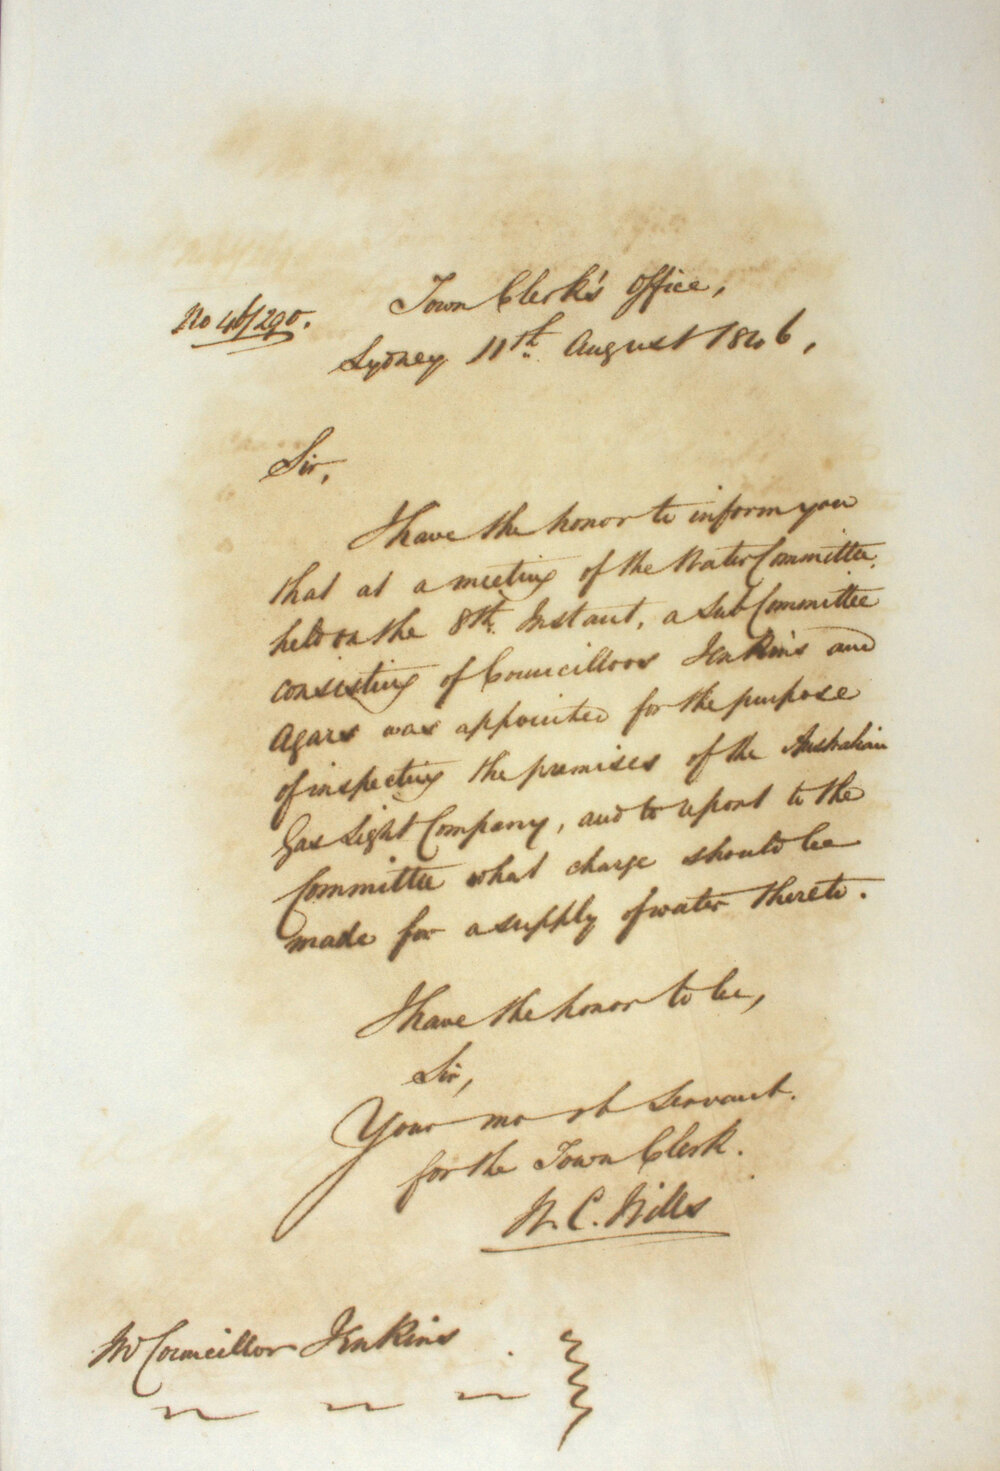 No 46/290.
Town Clerk's Office,
Sydney 11th August 1846,
Sir,
I have the honor to inform you
that at a meeting of the Water Committee,
held on the 8th Instant, a Sub Committee
consisting of Councillors Jenkins and
Agars was appointed for the purpose
of inspecting the premises of the Australian
Gas Light Company, and to report to the
Committee what charge should be
made for a supply of water thereto.
I have the honor to be,
Sir,
Your mo ob Servant.
for the Town Clerk.
W. C. Wills
Mr Councillor Jenkins